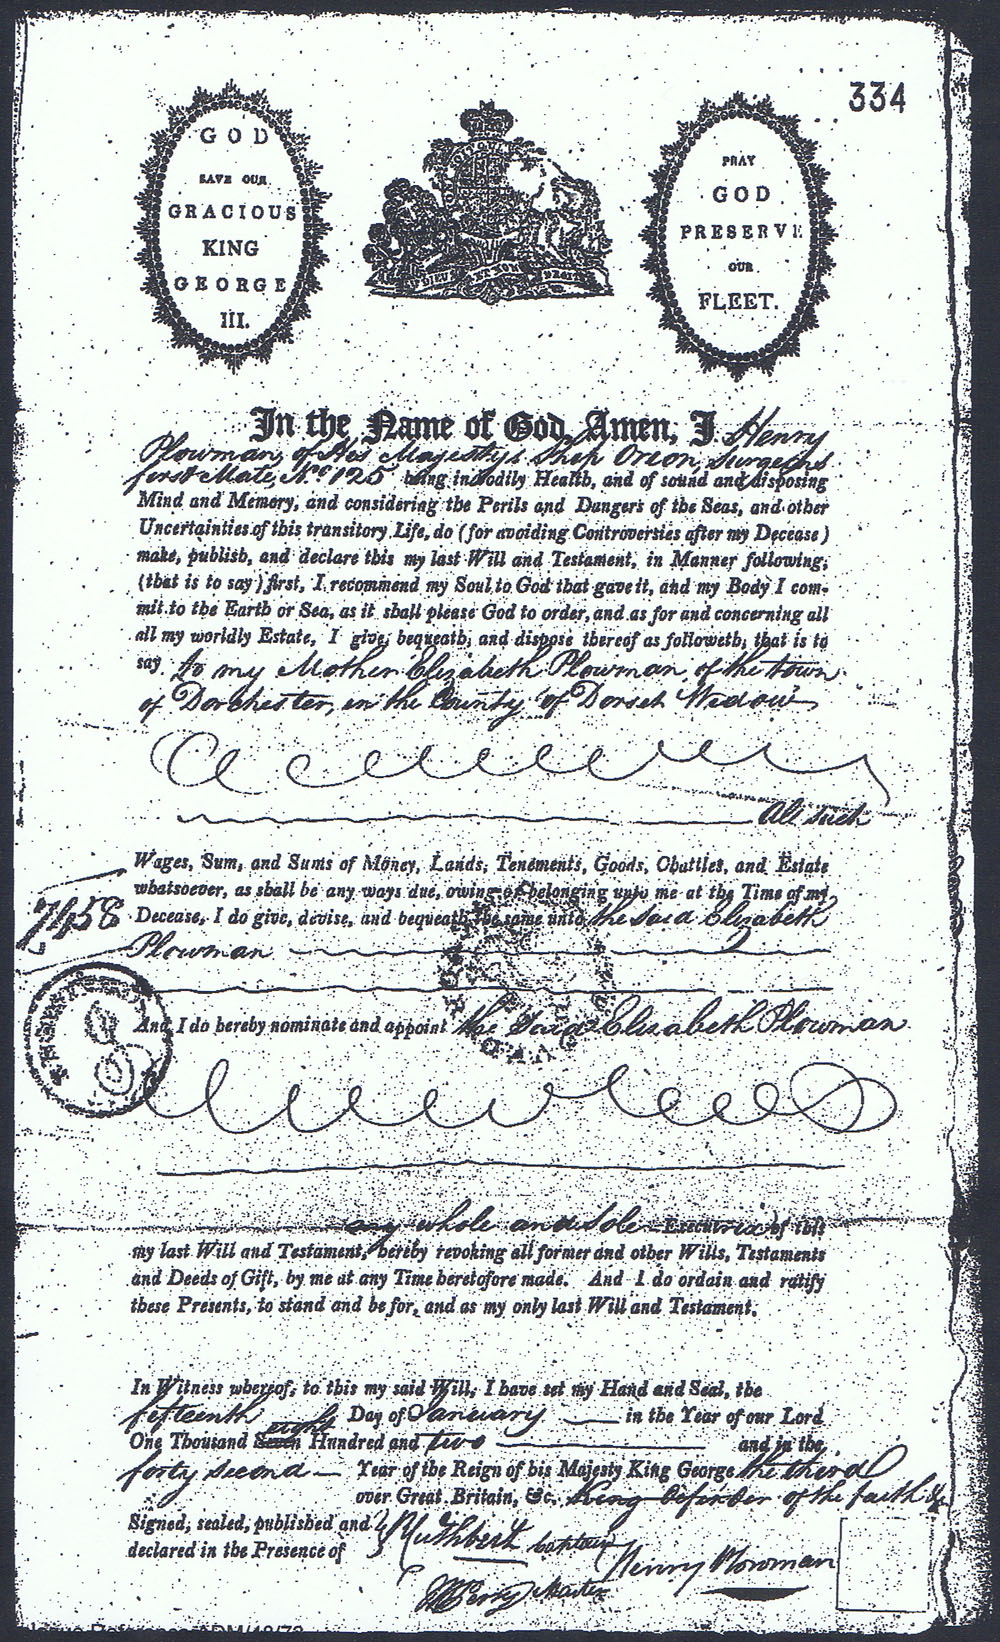 334
GOD
SAVE OUR
GRACIOUS
KING
GEORGE
III.
PRAY
GOD
PRESERVE
OUR
FLEET.
DIEU ET MON
In the Name of God, Amen, I Henry
Plowman, of His Majesty's Ship Orion, Surgeons
first Mate, No. 125 being in bodily Health, and of sound and disposing
Mind and Memory, and considering the Perils and Dangers of the Seas, and other
Uncertainties of this transitory Life, do (for avoiding Controversies after my Decease)
make, publish, and declare this my last Will and Testament, in Manner following,
(that is to say) first, I recommend my Soul to God that gave it, and my Body I com-
mit to the Earth or Sea, as it shall please God to order, and as for and concerning all
all my worldly Estate, I give, bequeath, and dispose thereof as followeth, that is to
say. to my Mother Elizabeth Plowman, of the town
of Dorchester, in the County of Dorset Widow
All such
Wages, Sum, and Sums of Money, Lands, Tenements, Goods, Chattles, and Estate
whatsoever, as shall be any ways due, owing or belonging unto me at the Time of my
Decease, I do give, devise, and bequeath the same unto the said Elizabeth
Plowman
7458
And I do hereby nominate and appoint the Said Elizabeth Plowman
my whole and Sole Executrix of this
my last Will and Testament, hereby revoking all former and other Wills, Testaments
and Deeds of Gift, by me at any Time heretofore made. And I do ordain and ratify
these Presents, to stand and be for, and as my only last Will and Testament.
In Witness whereof, to this my said Will, I have set my Hand and Seal, the
fifteenth Day of January in the Year of our Lord
One Thousand Seven eight Hundred and two and in the
forty second Year of the Reign of his Majesty King George the third
over Great Britain, &c. King Defender of the faith &c
Signed, sealed, published and
declared in the Presence of
Cuthbert Captain
Henry Plowman
Perry Master